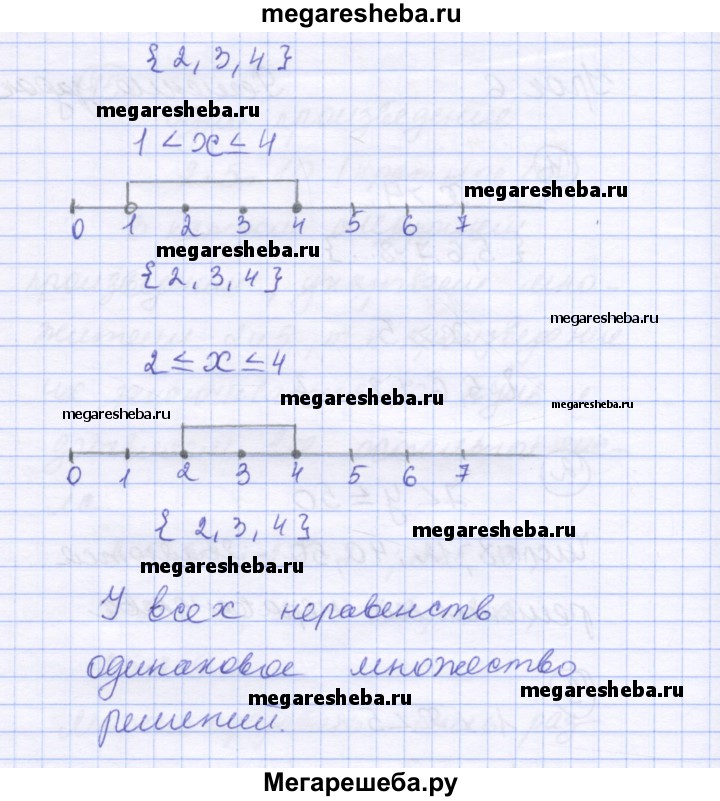 megaresheba.ru
{2, 3, 4}
megaresheba.ru
1 < x ≤ 4
megaresheba.ru
0 1 2 3 4 5 6 7
megaresheba.ru
{2, 3, 4}
megaresheba.ru
2 ≤ x ≤ 4
megaresheba.ru
megaresheba.ru
megaresheba.ru
0 1 2 3 4 5 6 7
{2, 3, 4}
megaresheba.ru
megaresheba.ru
У всех неравенств
одинаковое множество
megaresheba.ru
megaresheba.ru
решений.
Мегарешеба.ру